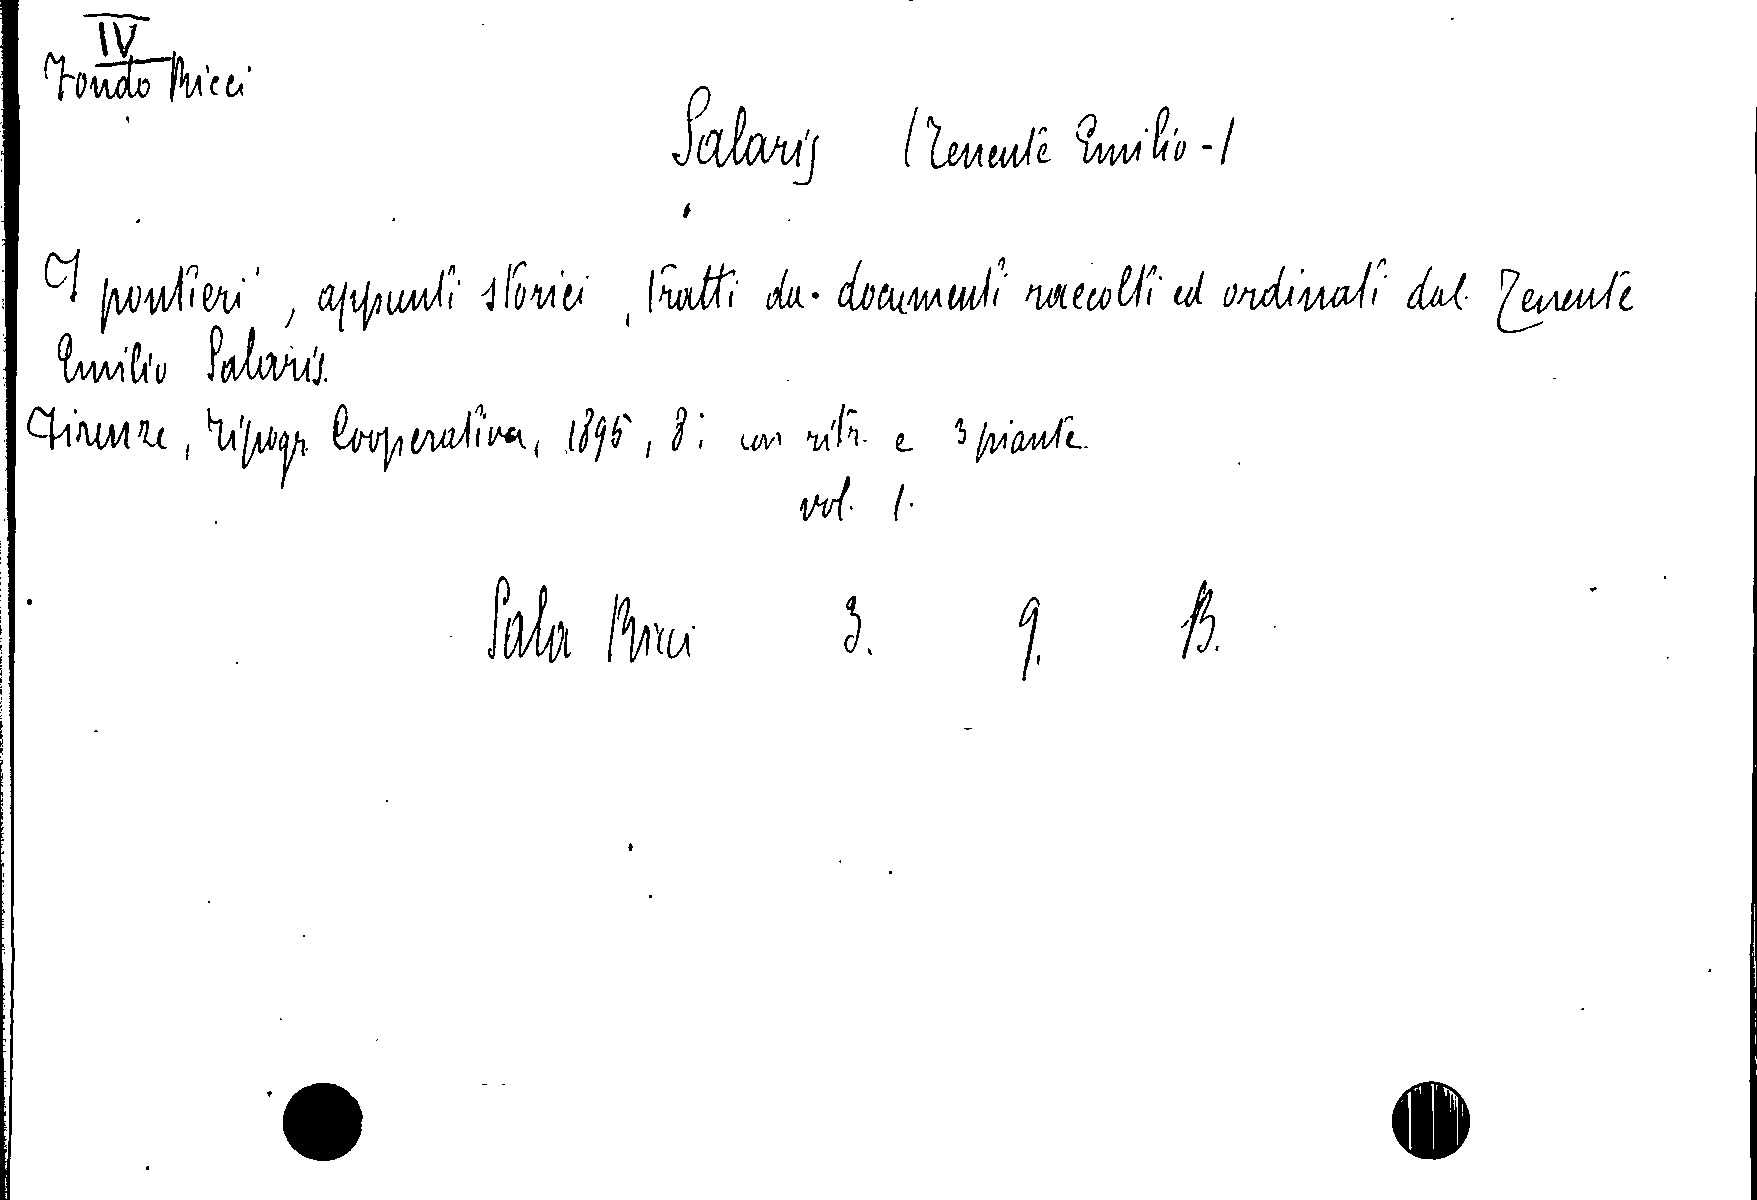 IV
Fondo Ricci
Salaris (Tenente Emilio-)
I pontieri, appunti storici, tratti da documenti raccolti ed ordinati dal Tenente
Emilio Salaris.
Firenze, Tipogr. Cooperativa, 1895, 8: con ritr. e 3 piante.
vol. 1.
Sala Ricci 3. 9. B.